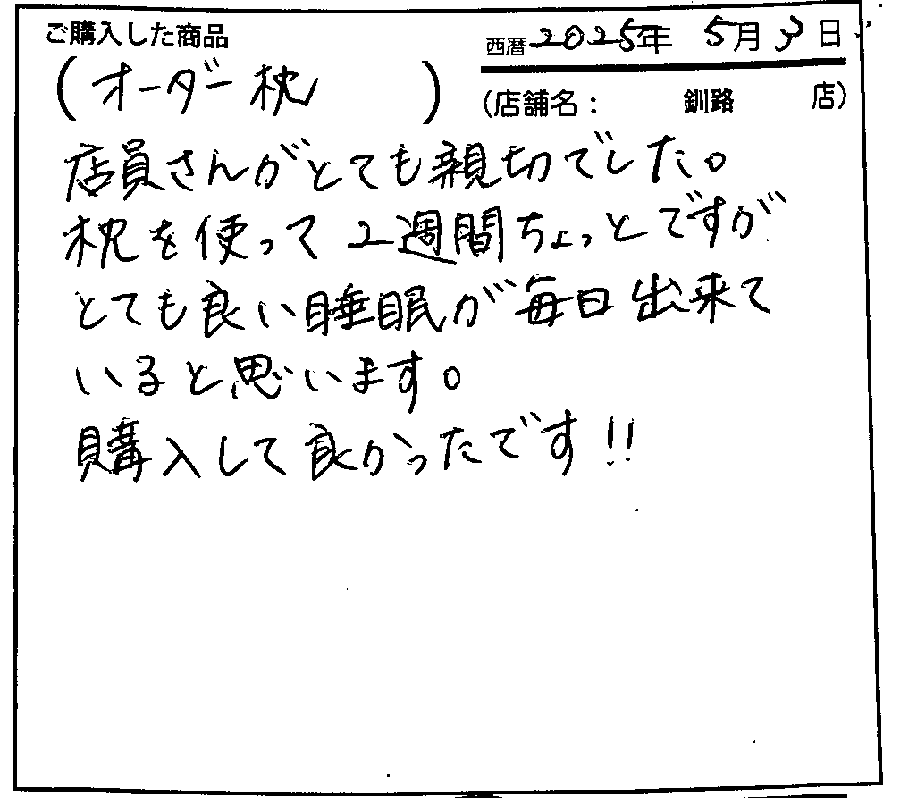 ご購入した商品
西暦2025年 5月3日
(オーダー枕 )
(店舗名: 釧路 店)
店員さんがとても親切でした。
枕を使って2週間ちょっとですが
とても良い睡眠が毎日出来て
いると思います。
購入して良かったです!!